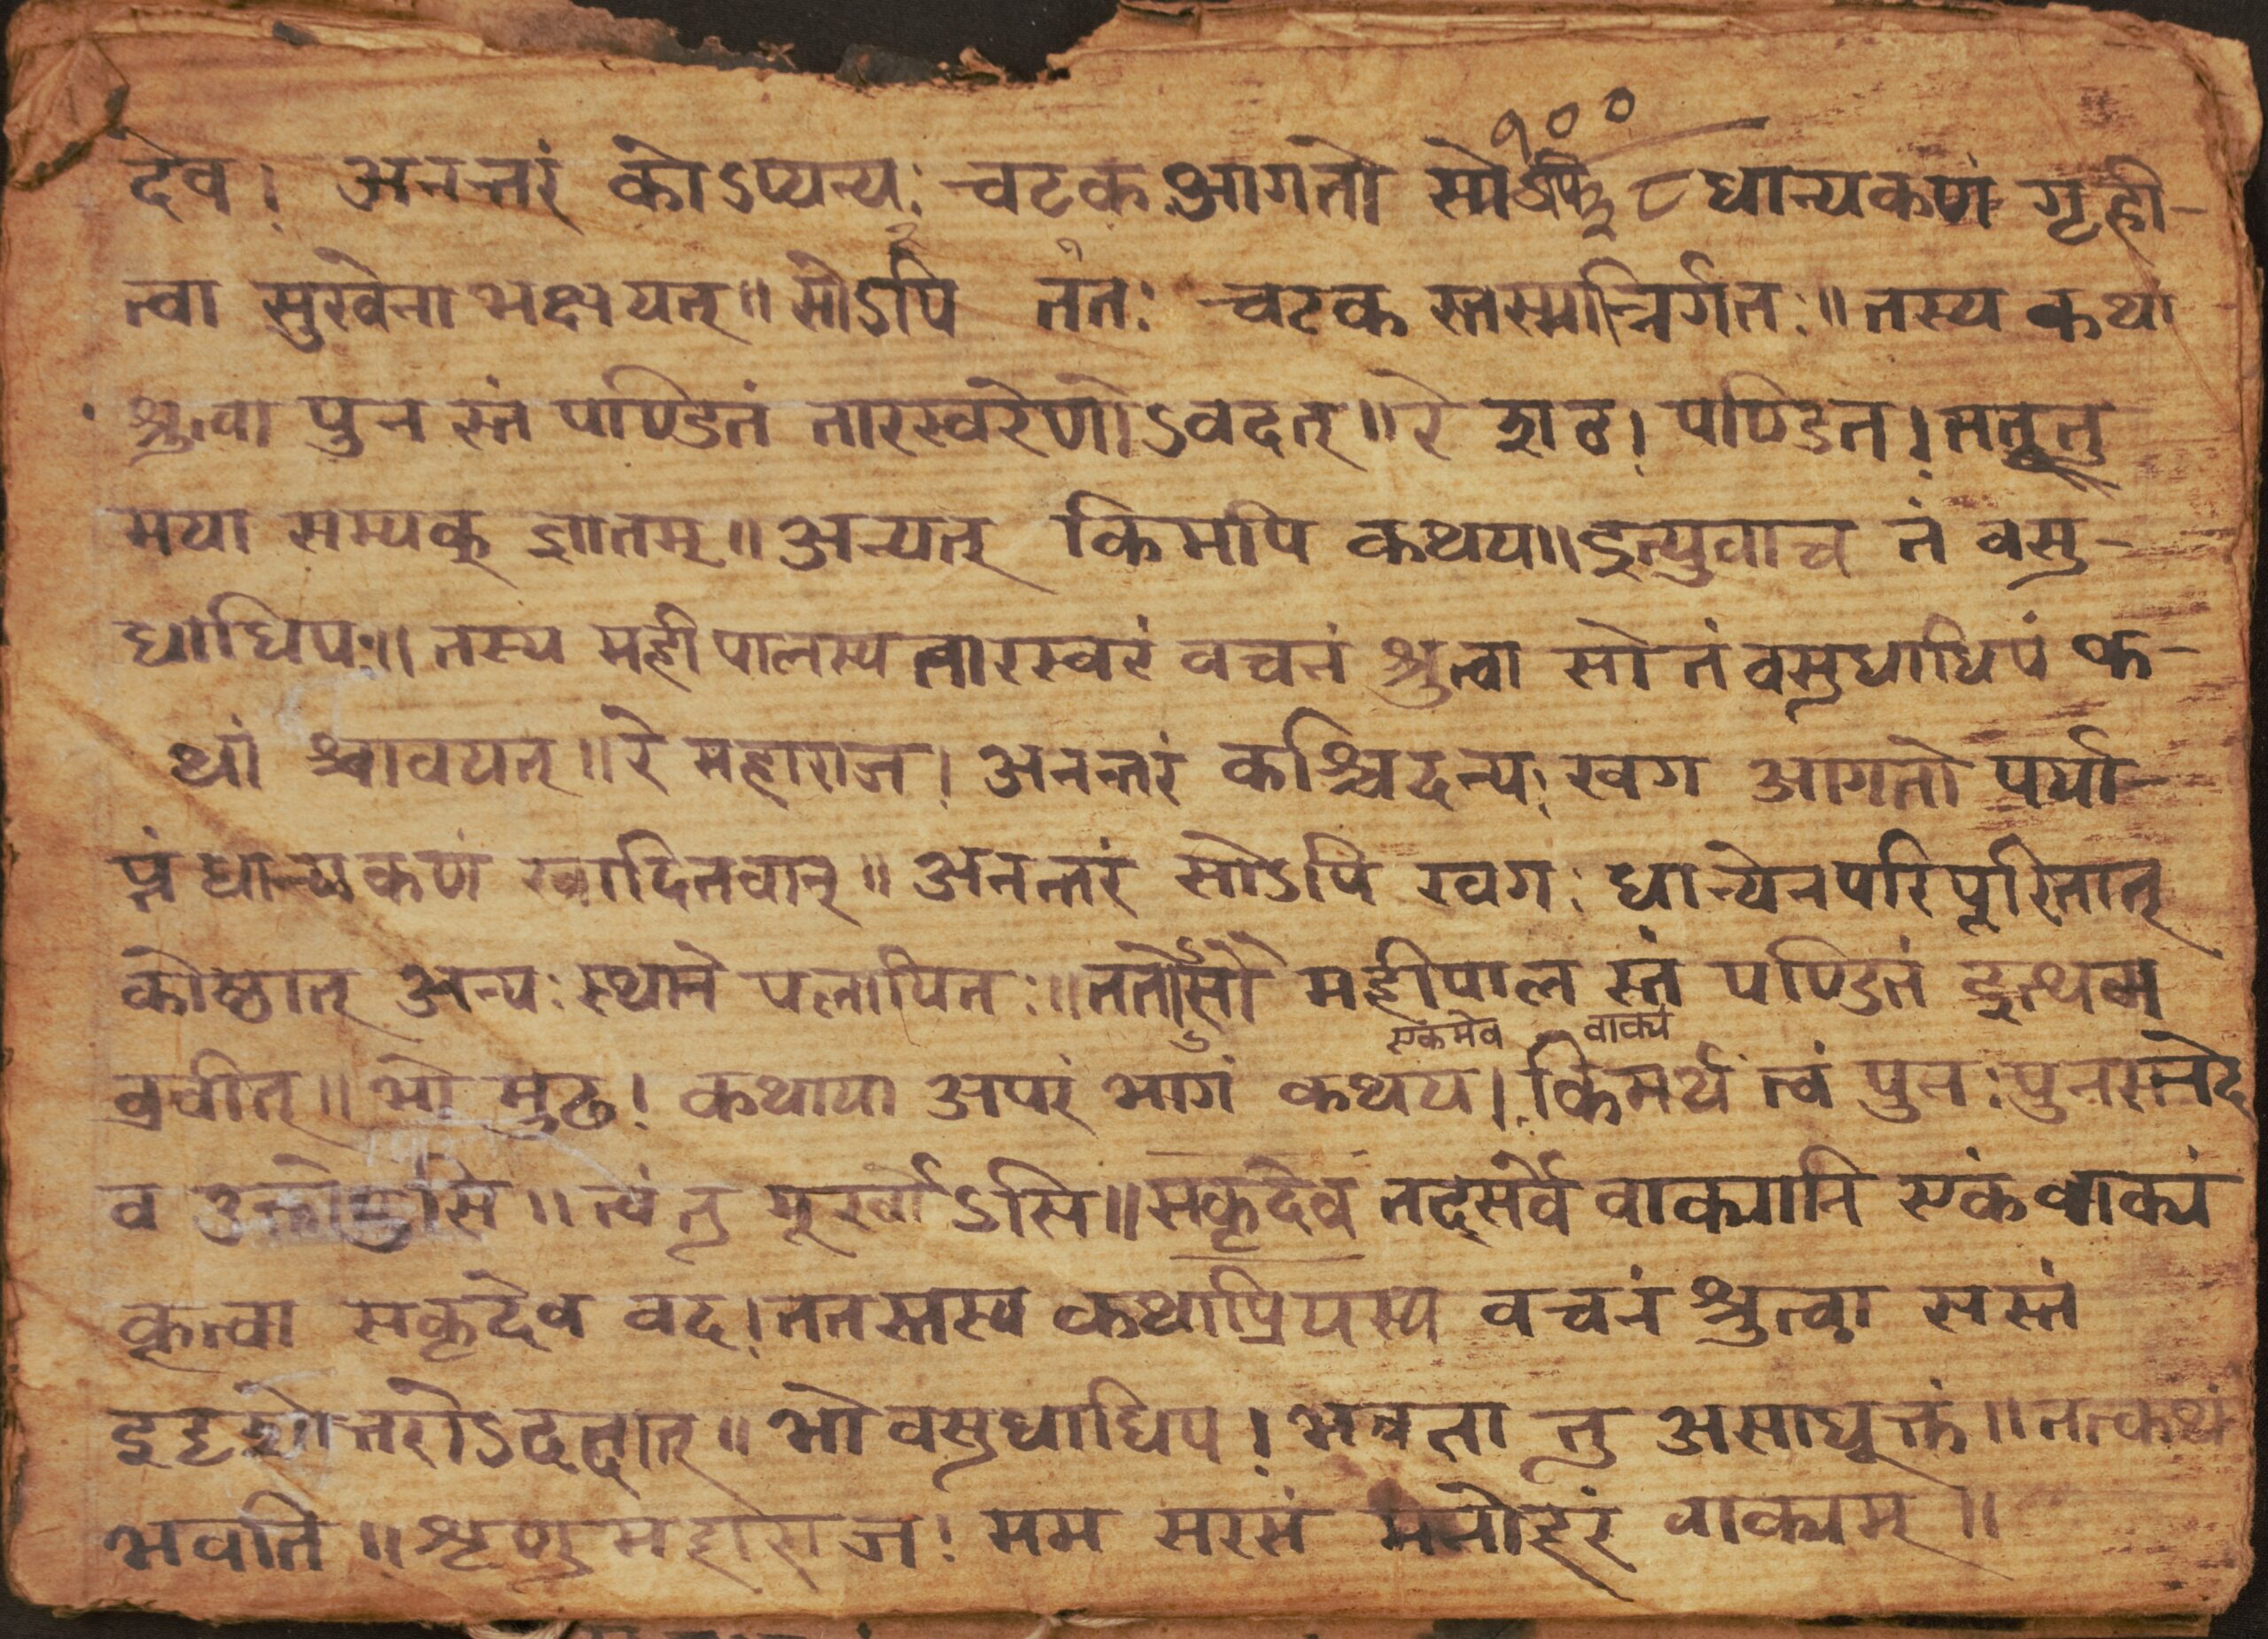 १००
देव! अनन्तरं कोऽप्यन्यः चटक आगतो सोऽपि धान्यकणं गृही-
त्वा सुखेनाभक्षयत्॥ सोऽपि ततः चटक स्तस्मान्निर्गतः॥ तस्य कथां
श्रुत्वा पुन स्तं पण्डितं तारस्वरेणोऽवदत्॥ रे शठ! पण्डित! तत्तु
मया सम्यक् ज्ञातम्॥ अन्यत् किमपि कथय॥ इत्युवाच तं वसु-
धाधिपः॥ तस्य महीपालस्य तारस्वरं वचनं श्रुत्वा सो तं वसुधाधिपं क-
थां श्रावयत्॥ रे महाराज! अनन्तरं कश्चिदन्यः खग आगतो पर्या-
प्तं धान्यकणं खादितवान्॥ अनन्तरं सोऽपि खगः धान्येन परिपूरितात्
कोष्ठात् अन्यः स्थाने पलायितः॥ ततोसौ महीपाल स्तं पण्डितं इत्थम
एकमेव वाक्यं
व्रवीत्॥ भो मुढ! कथाया अपरं भागं कथय। किमर्थं त्वं पुनः पुनस्तदे
व उक्तोऽसि॥ त्वं तु मूर्खोऽसि॥ सकृदेव तद्सर्वे वाक्यानि एकं वाक्यं
कृत्वा सकृदेव वद! ततस्तस्य कथाप्रियस्य वचनं श्रुत्वा सस्तं
इदृशोत्तरोऽदद्त्॥ भो वसुधाधिप! भवता तु असाधूक्तं॥ तत्कथं
भवति॥ शृणु महाराज! मम सरसं मनोहरं वाक्यम्॥